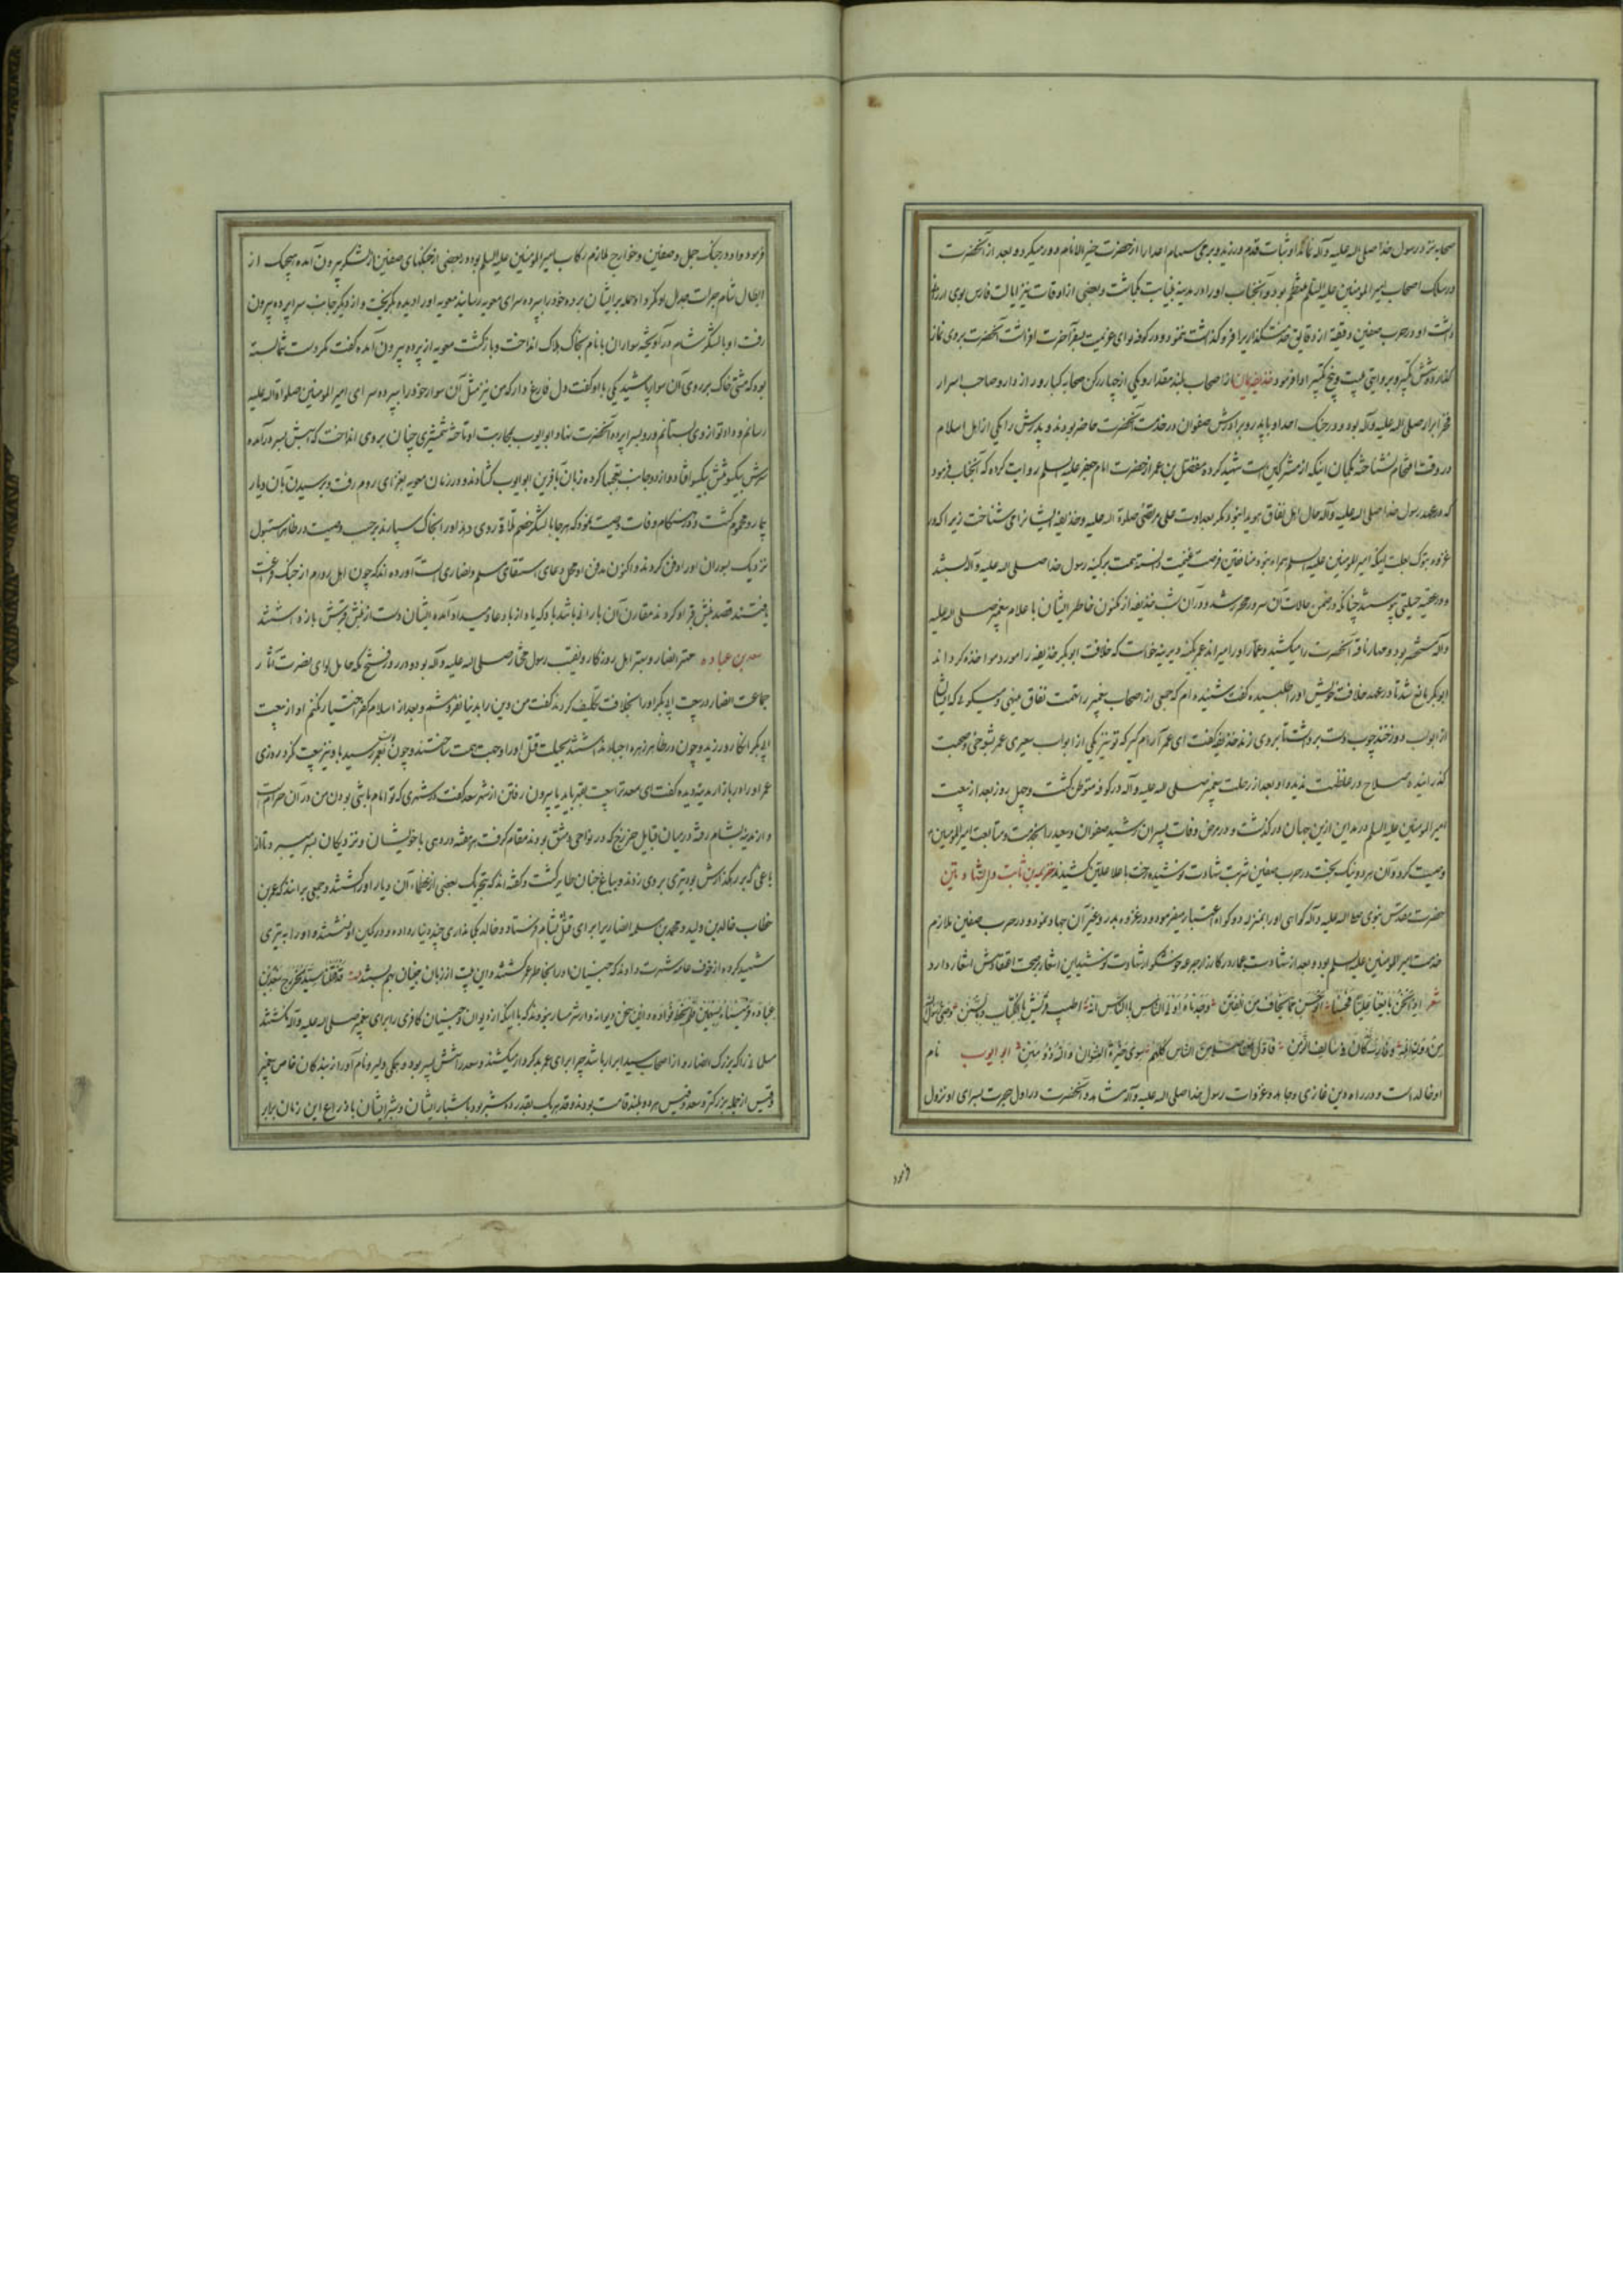 صحابه نزد رسول خدا صلی الله علیه و آله نماند او ثبات قدم ورزید و برمی سهام اعدا را از حضرت خیر الانام دور میکرد و بعد از آنحضرت
در سلک اصحاب امیر المومنین علیه السلم منتظم بود و آنجناب او را در مدینه بنیابت بگذاشت و بعضی از اوقات نیز ایالت فارس بوی ارزانی
داشت او در حرب صفین دقیقه از دقایق خدمتگذاری را فرو گذاشت ننمود و در کوفه لوای عزیمت بسفر آخرت افراشت آنحضرت بر وی نماز
گذارد و شش تکبیر و بروایتی بیست و پنج تکبیر ادا فرمود حذیفه یمان از اصحاب بلند مقدار و یکی از چهار رکن صحابه کبار و راز دار و صاحب اسرار
فخر ابرار صلی الله علیه و آله بود و در جنک احد او با پدر و برادرش صفوان در خدمت آنحضرت حاضر بودند و پدرش را یکی از اهل اسلام
در وقت التحام نشناخته بگمان اینکه از مشرکین است شهید کرد مفضل بن عمر از حضرت امام جعفر علیه السلم روایت کرده که آنجناب فرمود
که در عهد رسول خدا صلی الله علیه و آله حال اهل نفاق هویدا نبود مگر بعداوت علی مرتضی صلوة الله علیه و حذیفه ایشانرا می شناخت زیرا که در
غزوه تبوک بعلت اینکه امیر المومنین علیه السلم همراه نبود منافقین فرصت غنیمت دانسته همت بر کینه رسول خدا صلی الله علیه و آله بستند
و در عقبه حیلتی پیوستند چنانکه در ضمن حالات آن سرور محرر شد و در آن شب حذیفه از مکنون خاطر ایشان با علام پیغمبر صلی الله علیه
و آله مستحضر بود و مهار ناقه آنحضرت را میکشید و عمار او را میراند عمر بکینه دیرینه خواست که خلافت ابوبکر حذیفه را مورد مواخذه کرداند
ابوبکر مانع شد تا در عهد خلافت خویش او را طلبیده گفت شنیده ام که جمعی از اصحاب پیغمبر را تهمت نفاق مینهی و میکوئی که ایشان
از ابواب دوزخند چوب دست برداشت تا بر وی زند حذیفه گفت ای عمر آرام گیر که تو نیز یکی از ابواب سعیری عمر بشوخی و صحبت
گذرانیده صلاح در غلظت ندید و او بعد از رحلت پیغمبر صلی الله علیه و آله در کوفه متوطن گشت و چهل روز بعد از بیعت
امیر المومنین علیه السلم در مداین ازین جهان در گذشت و در مرض وفات پسران رشید صفوان و سعید را بخدمت و متابعت امیر المومنین
وصیت کرد و آن هر دو نیک بخت در حرب صفین شربت شهادت نوشیده رخت باعلا علیین کشیدند خزیمه بن ثابت ذو الشهادتین
حضرت مقدس نبوی صلی الله علیه و آله گواهی او را بمنزله دو گواه اعتبار میفرمود و در غزوه بدر و غیر آن جهاد نمود و در حرب صفین ملازم
خدمت امیر المومنین علیه السلم بود و بعد از شهادت عمار در کارزار جرعه خوشگوار شهادت نوشید این اشعار بصحت اعتقادش اشعار دارد
شعر اذا نحن بایعنا علیا فحسبنا ابو حسن مما نخاف من الفتن وجدناه اولی الناس بالناس انه اطب قریش بالکتاب و بالسنن وصی رسول الله
من دون اهله و فارسه کان فی سالف الزمن و اول من صلی من الناس کلهم سوی خیرة النسوان و الله ذو منن ابو ایوب نام
او خالد است و در راه دین غازی و مجاهد و غزوات رسول خدا صلی الله علیه و آله مشاهد و آنحضرت در اول هجرت بسرای او نزول
فرمود
فرمود و او در جنک جمل و صفین و خوارج ملازم رکاب امیر المومنین علیه السلم بود و در بعضی از جنگهای صفین از لشکر بیرون آمده هیچیک از
ابطال شام جرات جدال او نکرد او حمله بر ایشان برده خود را بپرده سرای معویه رسانید معویه او را دیده بگریخت و از دیگر جانب سراپرده بیرون
رفت او با لشکر شام در آویخته سواران با نام بخاک هلاک انداخت و باز گشت معویه از پرده بیرون آمده گفت مگر دست شما بسته
بود که مشتی خاک بر روی آن سوار پاشید یکی با او گفت دل فارغ دار که من نیز مثل آن سوار خود را بپرده سرای امیر المومنین صلوة الله علیه
رسانم و داد تو از وی بستانم و رو بسراپرده آنحضرت نهاد ابو ایوب بمحاربت او تاخته شمشیری چنان بر وی انداخت که اسبش بسر در آمده
سرش بیکسو و تنش بیکسو افتاد و از دو جانب تعجبها کرده زبان بآفرین ابو ایوب گشادند و در زمان معویه بغزای روم رفت و برسیدن بآن دیار
بیمار و محموم گشت و در هنگام وفات وصیت نمود که هر جا با لشکر خصم تلاقی روی دهد او را بخاک سپارند بر حسب وصیت در ظاهر استنبول
نزدیک بسور آن او را دفن کردند و اکنون مدفن او محل دعای استسقای مسلم و نصاری است آورده اند که چون اهل روم از جنک فراغت
یافتند قصد نبش قبر او کردند مقارن آن باران باشد باد که یاد از باد عاد میداد آمده ایشان دست از نبش قبرش باز داشتند
سعد بن عباده مهتر انصار و بهتر اهل روزکار و نقیب رسول مختار صلی الله علیه و آله بود و در روز فتح مکه حامل لوای نصرت آثار
جماعت انصار در بیعت ابو بکر او را بخلافت تکلیف کردند گفت من دین را بدنیا نفروشم و بعد از اسلام کفر اختیار نکنم او از بیعت
ابو بکر انکار ورزید و چون در ظاهر زهره اجبار نداشتند بحیلت قتل او را وجهه همت ساختند و چون نوبت بعمر رسید با او نیز بیعت نکرد روزی
عمر او را در بازار مدینه دیده گفت ای سعد ترا بیعت بمن باید یا بیرون رفتن از شهر سعد گفت در شهری که تو امام باشی بودن من در آن حرام است
و از مدینه بشام رفته در میان قبایل خزرج که در نواحی دمشق بودند مقام گرفت هر هفته در دهی با خویشان و نزدیکان بسر میبرد تا از
باغی که بر رهگذارش بود تیری بر وی زدند و بباغ جنان طایر گشت و گفته اند که بتحریک بعضی از عظماء آن دیار او را کشتند و جمعی بر انند که عمر بن
خطاب خالد بن ولید و محمد بن مسلمه انصاری را برای قتل او بشام فرستاد و خالد بکمانداری چند دینار داده و در کمین او نشستند و او را به تیری
شهید کرده از خوف عامه شهرت دادند که جنیان او را بخاطر عمر کشتند و این بیت از زبان جنیان بهم بستند قد قتلنا سید الخزرج سعد بن
عباده فرمیناه بسهمین فلم نخط فؤاده و این سخن دیوانه وار شرمسار نبودند که با اینکه از دیوان و جنیان کافری را برای پیغمبر صلی الله علیه و آله نکشتند
مسلمانی را که بزرک انصار و از اصحاب سید ابرار باشد چرا برای عمر بد کردار میکشند و سعد را شش پسر بود و همگی دلیر و نام آور از بندکان خاص پیغمبر
و قیس از جمله بزرکتر و سعد و قیس هر دو بلند قامت بودند و قد هر یک بقدر ده شبر بود باشبار ایشان و شبر ایشان باذراع این زمان برابر